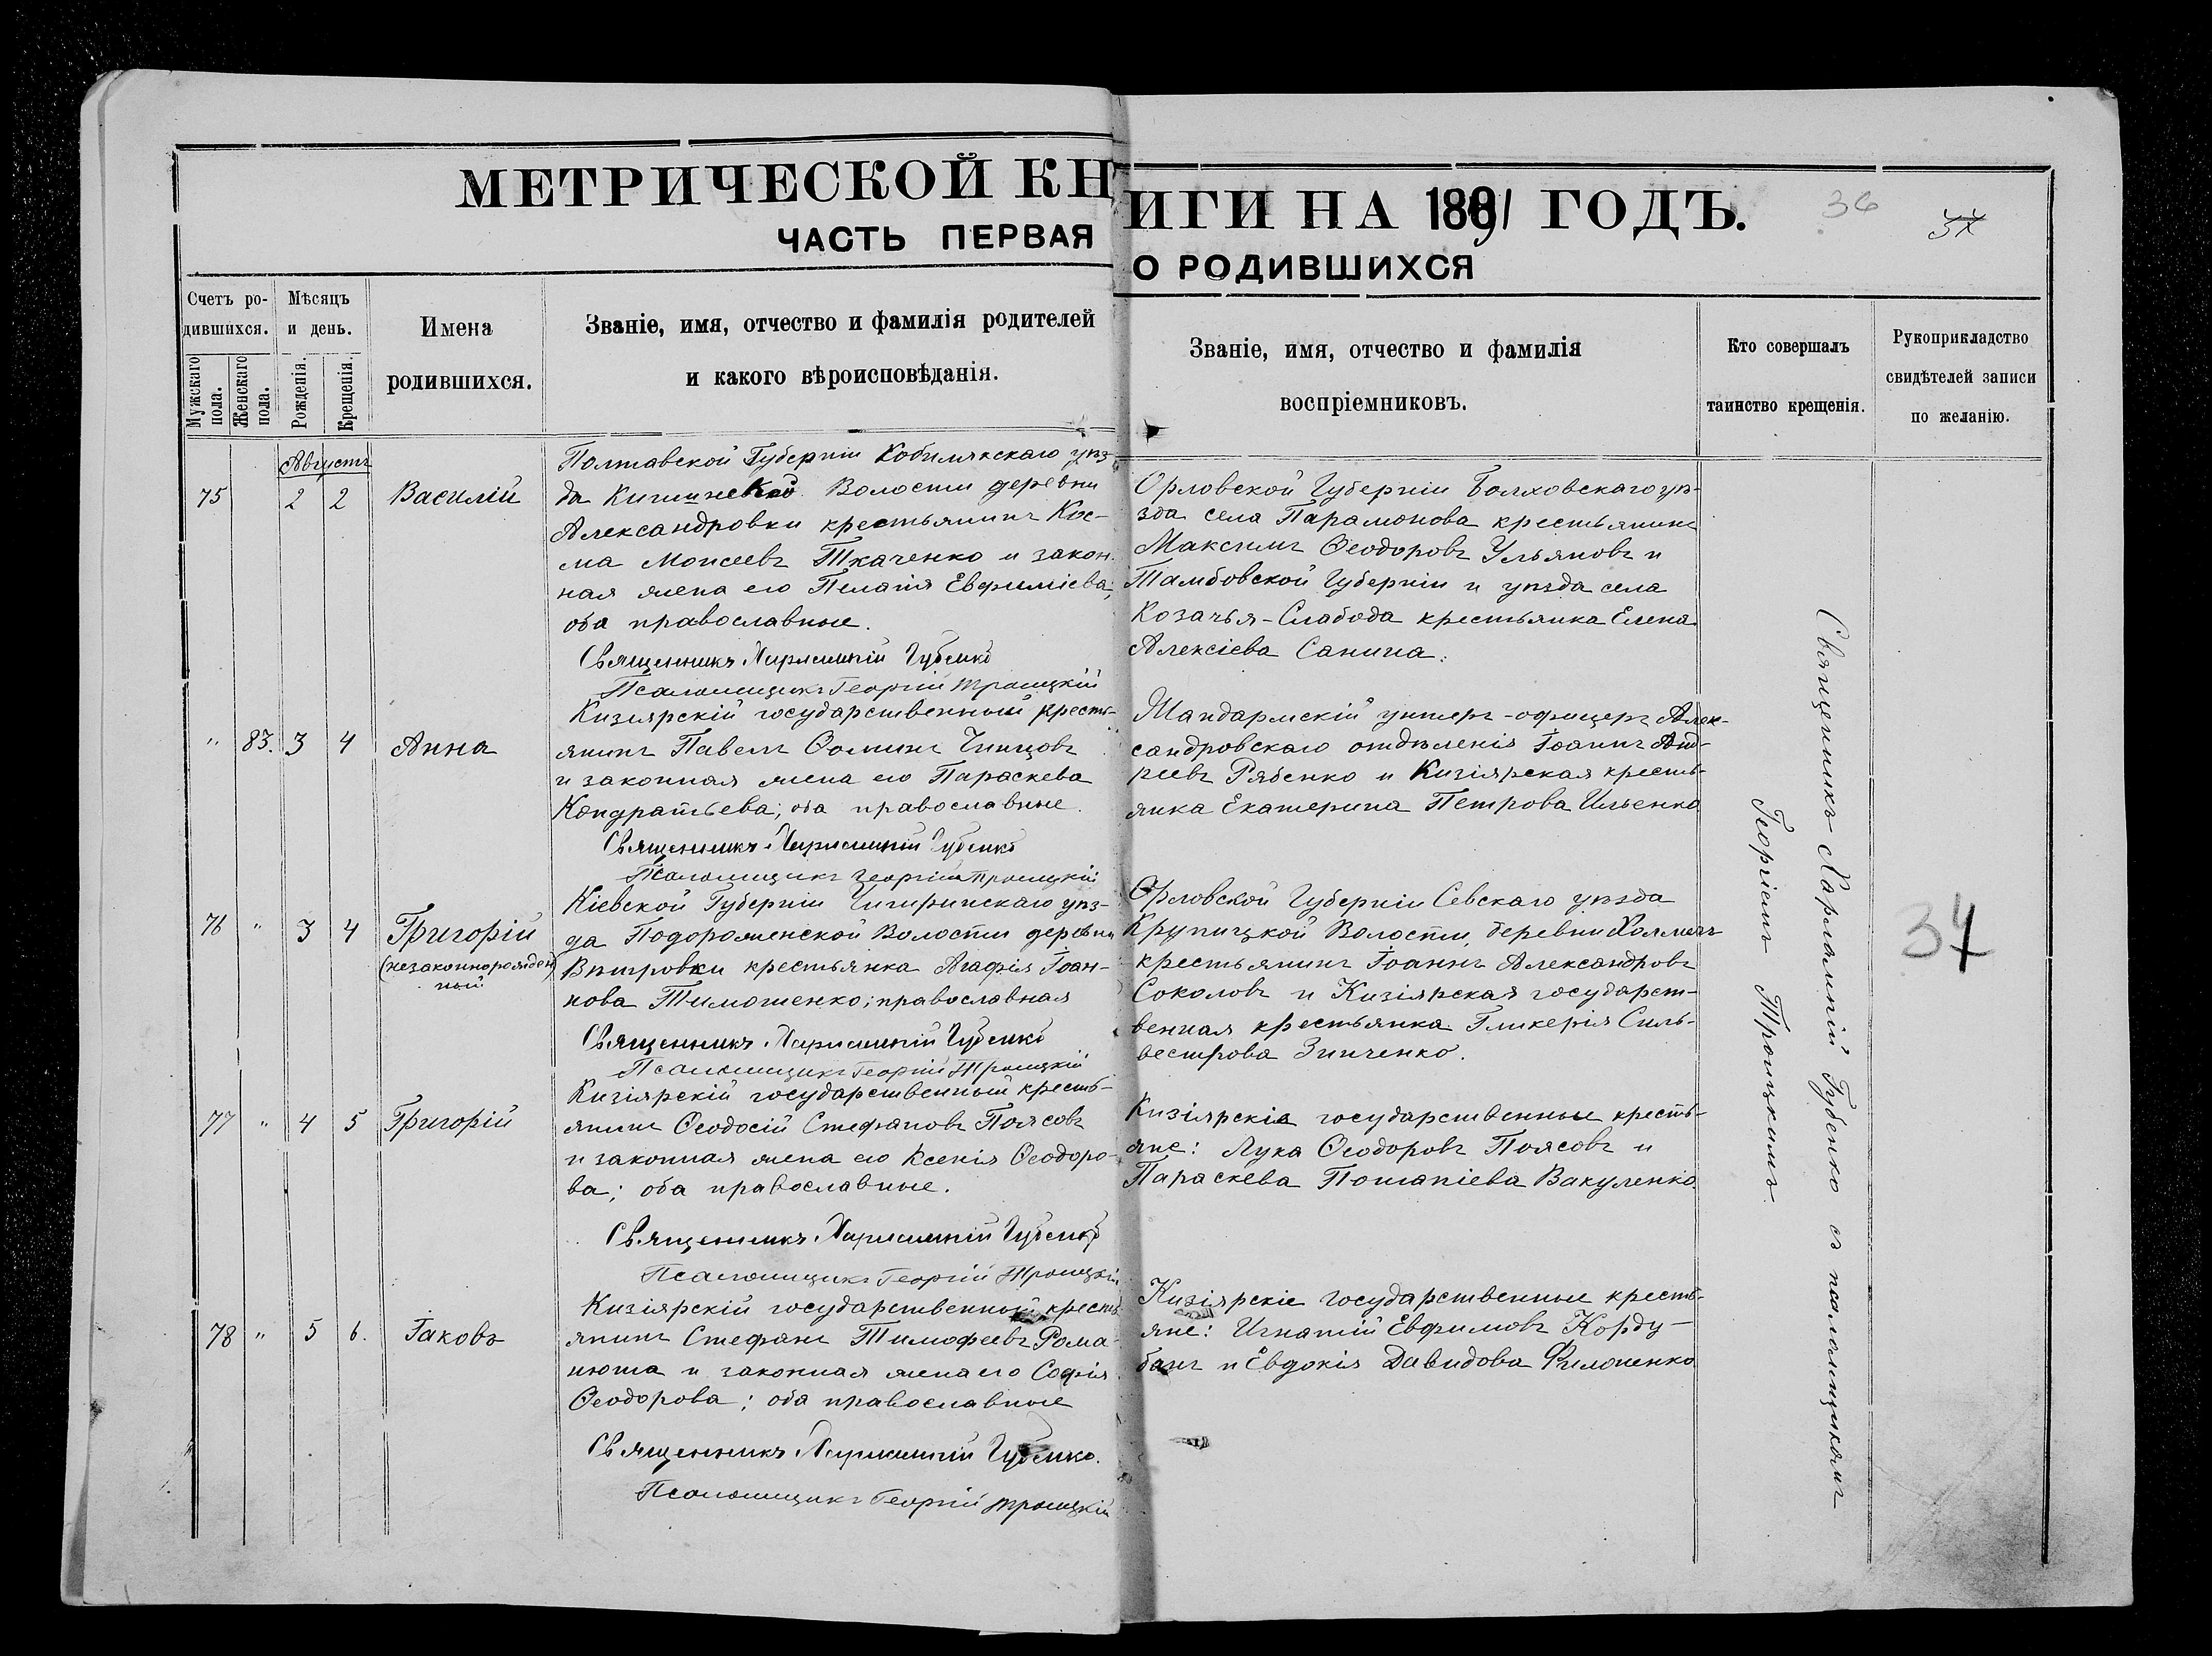 МЕТРИЧЕСКОЙ КНИГИ НА 1891 ГОДЪ.
36
34
ЧАСТЬ ПЕРВАЯ О РОДИВШИХСЯ
Счетъ родившихся.
Мужскаго пола.
Женскаго пола.
Мѣсяцъ и день.
Рожденія.
Крещенія.
Имена
родившихся.
Званіе, имя, отчество и фамилія родителей
и какого вѣроисповѣданія.
Званіе, имя, отчество и фамилія
воспріемниковъ.
Кто совершалъ
таинство крещенія.
Рукоприкладство
свидѣтелей записи
по желанію.
Августъ
75 2 2 Василій
Полтавской Губерніи Кобилякскаго уѣз-
да Волости деревни
Александровки крестьянинъ Кос-
ма Моисеевъ Ткаченко и закон-
ная жена его Пелагія Евфиміева;
оба православные.
Священникъ Харлампій Губенко
Псаломщикъ Георгій Троицкій
Орловской Губерніи Болховскаго уѣ-
зда села Парамонова крестьянинъ
Максимъ Ѳеодоровъ Ульяновъ и
Тамбовской Губерніи и уѣзда села
Козачья-Слабода крестьянка Елена
Алексіева Санина.
" 83. 3 4 Анна
Кизіярскій государственный кресть-
янинъ Павелъ Ѳоминъ
и законная жена его Параскева
Кондратьева; оба православные.
Священникъ Харлампій Губенко
Псаломщикъ Георгій Троицкій
Жандармскій унтеръ-офицеръ Алек-
сандровскаго отдѣленія Іоаннъ Анд-
реевъ Рябенко и Кизіярская кресть-
янка Екатерина Петрова Ильенко
76 " 3 4 Григорій
(незаконнорожден-
ный)
Кіевской Губерніи Чигиринскаго уѣз-
да Подорожненской Волости деревни
крестьянка Агафія Іоан-
нова Тимошенко; православная
Священникъ Харлампій Губенко
Псаломщикъ Георгій Троицкій
Орловской Губерніи Севскаго уѣзда
Крупицкой Волости, деревни
крестьянинъ Іоаннъ Александровъ
Соколовъ и Кизіярская государст-
венная крестьянка Гликерія Силь-
вестрова Зинченко.
77 " 4 5 Григорій
Кизіярскій государственный кресть-
янинъ Ѳеодосій Стефановъ Поясовъ
и законная жена его Ксенія Ѳеодоро-
ва; оба православные.
Священникъ Харлампій Губенко
Псаломщикъ Георгій Троицкій
Кизіярскія государственные кресть-
яне: Лука Ѳеодоровъ Поясовъ и
Параскева Потапіева Вакуленко
78 " 5 6. Іаковъ
Кизіярскій государственный кресть-
янинъ Стефанъ Тимофеевъ Рома-
нюта и законная жена его Софія
Ѳеодорова; оба православные
Священникъ Харлампій Губенко.
Псаломщикъ Георгій Троицкій
Кизіярскіе государственные кресть-
яне: Игнатій Евфимовъ Корду-
банъ и Евдокія Давидова Филоненко
Священникъ Харлампій Губенко съ псаломщикомъ
Георгіемъ Троицкимъ.
34